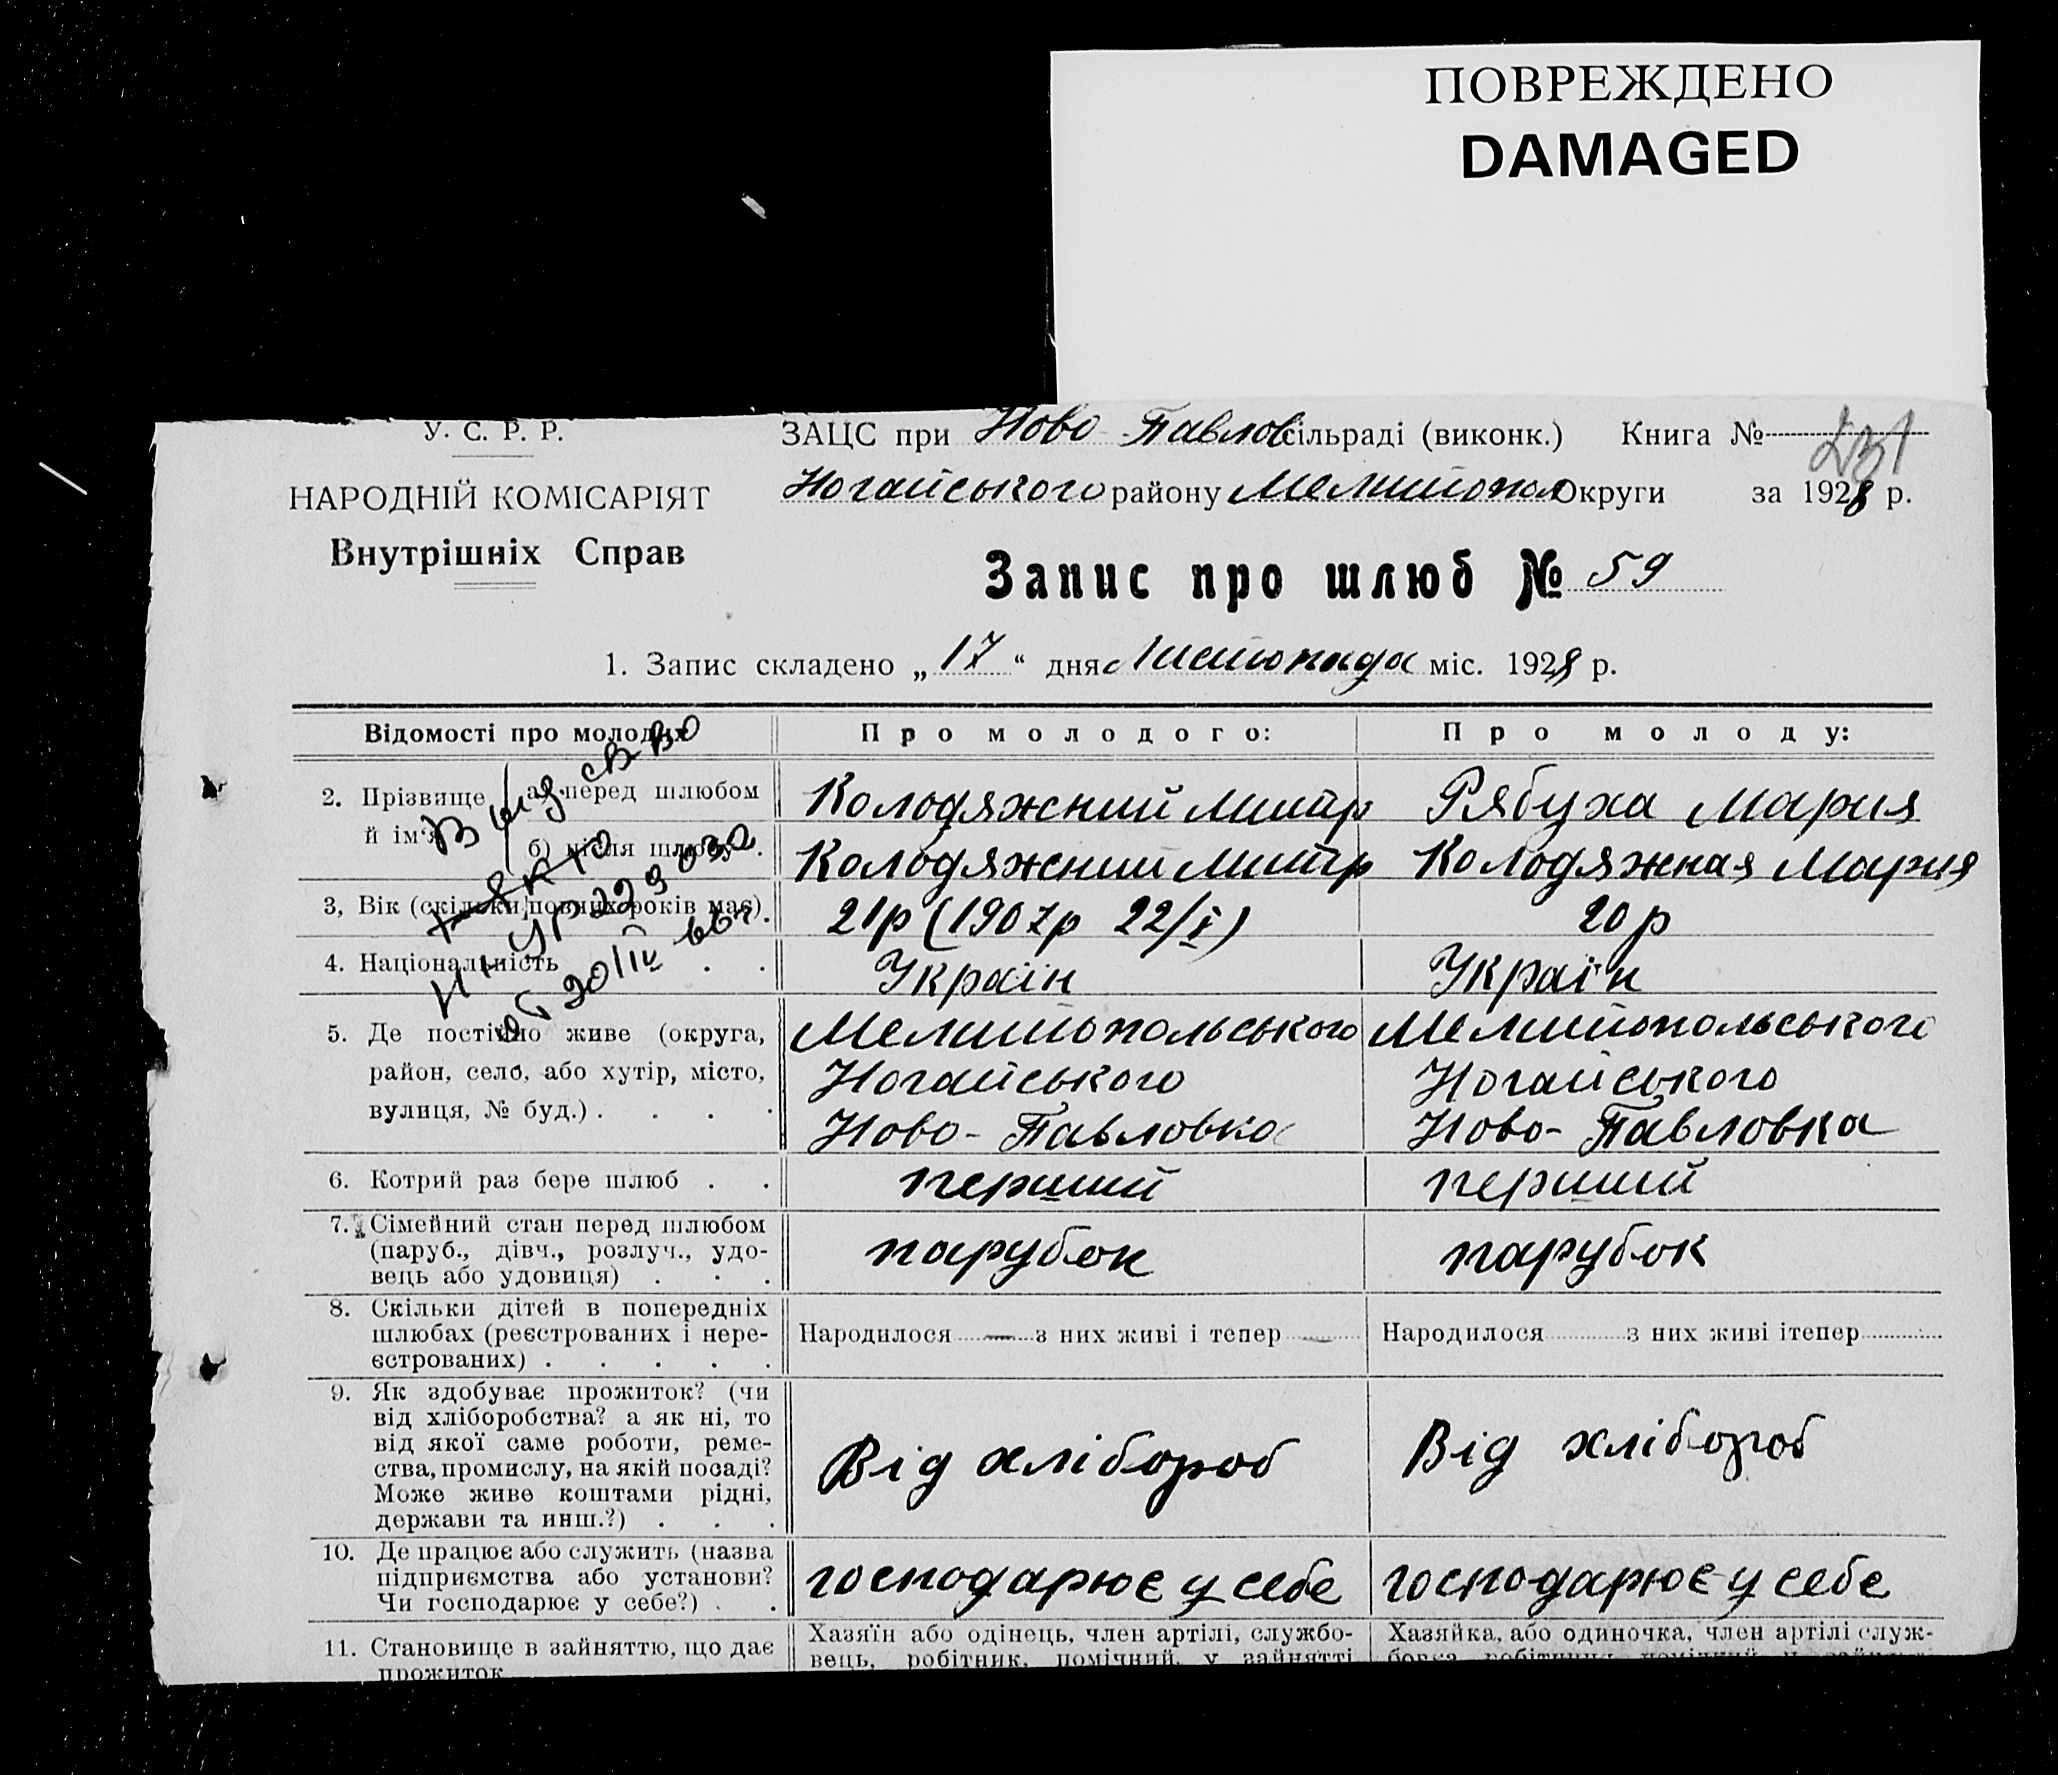 ПОВРЕЖДЕНО
DAMAGED
У. С. Р. Р.
ЗАЦС при Ново-Павлов сільраді (виконк.) Книга № 231
НАРОДНІЙ КОМІСАРІЯТ
Ногайського району Мелитопол Округи за 1928 р.
Внутрішніх Справ
Запис про шлюб № 59
1. Запис складено „ 17 “ дня Листопада міс. 1928 р.
Відомості про молодих
Про молодого:
Про молоду:
2. Прізвище й ім‘я
а) перед шлюбом
Колодяжний Митр
Рябуха Мария
б) після шлюбу .
Колодяжний Митр
Колодяжная Мария
3, Вік (скільки повних років має).
21р (1907р 22/X)
20р
4. Національність . .
Україн
Україн
5. Де постійно живе (округа,
район, село, або хутір, місто,
вулиця, № буд.) . . . .
Мелитопольського
Ногайського
Ново-Павловка
Мелитопольського
Ногайського
Ново-Павловка
6. Котрий раз бере шлюб . .
перший
перший
7. Сімейний стан перед шлюбом
(паруб., дівч., розлуч., удо-
вець або удовиця) . . .
парубок
парубок
8. Скільки дітей в попередніх
шлюбах (реєстрованих і нере-
єстрованих) . . . . .
Народилося — з них живі і тепер —
Народилося з них живі ітепер
9. Як здобуває прожиток? (чи
від хліборобства? а як ні, то
від якої саме роботи, реме-
ства, промислу, на якій посаді?
Може живе коштами рідні,
держави та инш.?) . . .
Від хлібороб
Від хлібороб
10. Де працює або служить (назва
підприємства або установи?
Чи господарює у себе?) . .
господарює у себе
господарює у себе
11. Становище в зайняттю, що дає
прожиток
Хазяїн або одінець, член артілі, службо-
вець, робітник, помічний у зайнятті
Хазяйка, або одиночка, член артілі служ-
Выд. св во
20/IV 66г.